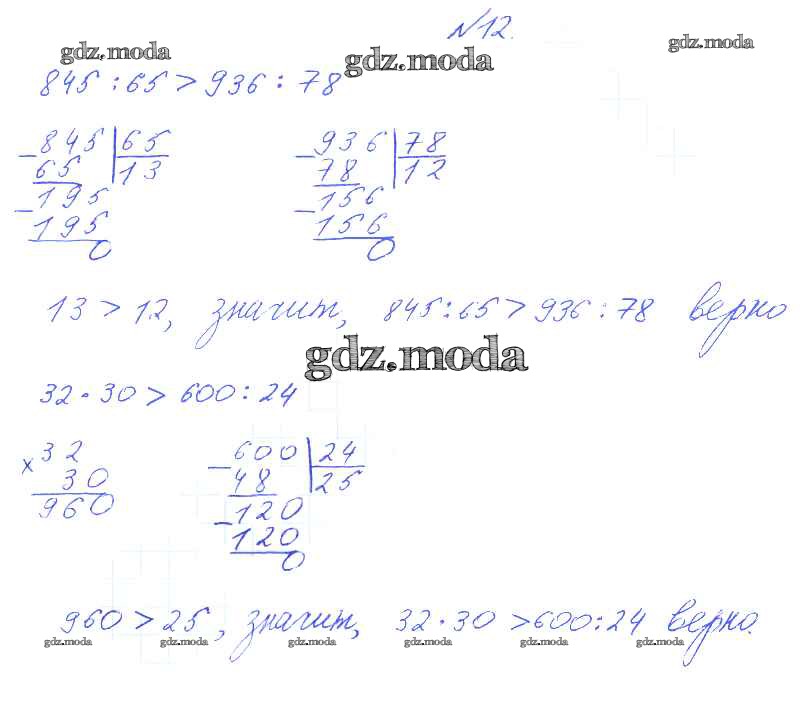 №12.
gdz.moda gdz.moda gdz.moda
845 : 65 > 936 : 78
845 65
65 13
195
195
0
936 78
78 12
156
156
0
13 > 12, значит, 845 : 65 > 936 : 78 верно
gdz.moda
32 · 30 > 600 : 24
× 32
30
960
600 24
48 25
120
120
0
960 > 25, значит, 32 · 30 > 600 : 24 верно.
gdz.moda gdz.moda gdz.moda gdz.moda gdz.moda gdz.moda